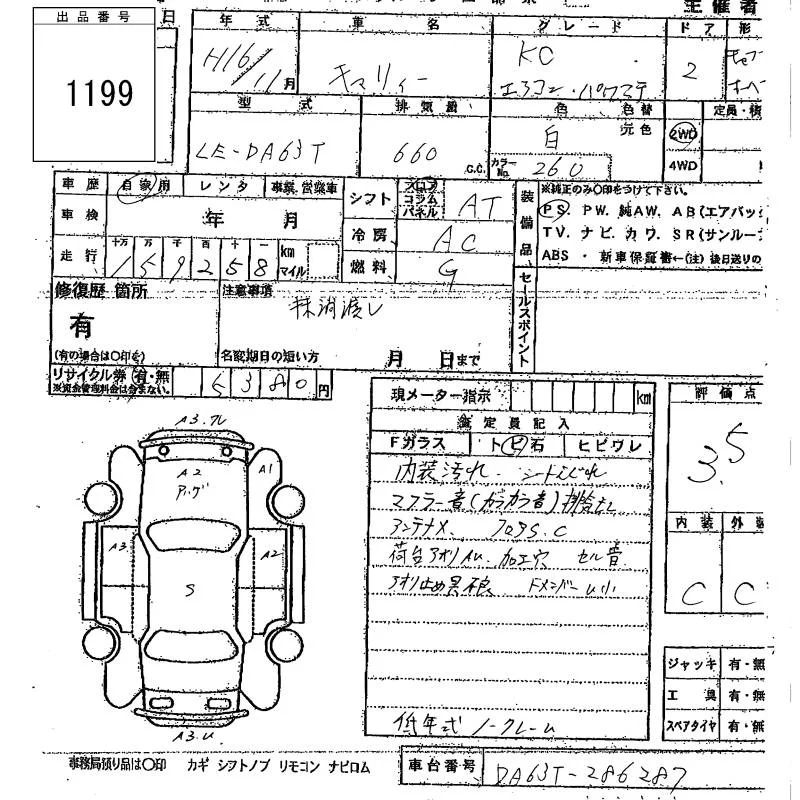 出品番号
1199
日
主催者
年式 車名 グレード ドア 形
H16/11月 キャリィー KC 2
エアコン・パワステ
型式 排気量 色 色替 定員・積
元色
LE-DA63T 660 C.C. 白 2WD
カラーNo. 260 4WD
車歴 自家用 レンタ 事業,営業車
シフト フロア コラム パネル AT
車検 年 月
冷房 AC
走行 十万 万 千 百 十 一 km マイル
159258
燃料 G
装備品
※純正のみ〇印をつけて下さい。
PS. PW. 純AW. AB(エアバッ
TV. ナビ. カワ. SR(サンルー
ABS ・ 新車保証書←(注) 後日送りの
セールスポイント
修復歴 箇所
有
(有の場合は〇印を)
注意事項
抹消渡し
名変期日の短い方 月 日まで
リサイクル券 有・無
※資金管理料金は含まない。
6380円
現メーター指示 km
評価点
3.5
査定員記入
Fガラス トビ石 ヒビワレ
内装汚れ. シート
マフラー音(ガラガラ音)
アンテナ
荷台アオリ 加工穴 セル音
アオリ止め具
低年式 ノークレーム
内装 外装
C C
ジャッキ 有・無
工具 有・無
スペアタイヤ 有・無
A3.
A2 A1
A3 A2
S
A3.U
事務局預り品は〇印 カギ シフトノブ リモコン ナビロム
車台番号 DA63T-286287